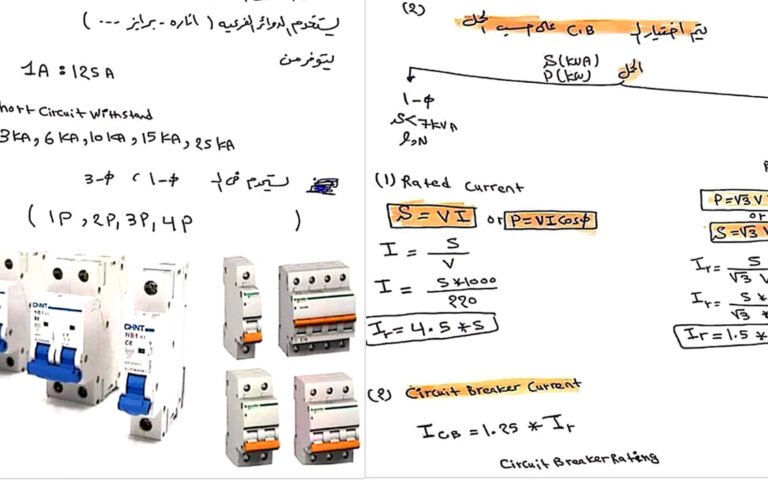 يستخدم للدوائر الفرعيه ( اناره - برايز ... )
ليتوفر من
1A : 125A
hort Circuit Withstand
3KA, 6KA, 10KA, 15KA, 25KA
يستخدم فى الـ 1-φ ، 3-φ
( 1P, 2P, 3P, 4P )
CHNT
NB1
CHNT
NB1
C6
(2)
يتم اختيار الـ C.B على حسب الحمل
S(KVA)
P(KW)
الحمل
1-φ
S<7KVA
L,N
(1) Rated Current
S = VI or P=VI Cosφ
I = S / V
I = S*1000 / 220
Ir = 4.5 * S
P=√3 V
or
S=√3 V
Ir= S / √3 V
Ir= S* / √3 *
Ir = 1.5 *
(2) Circuit Breaker Current
I CB = 1.25 * Ir
Circuit Breaker Rating